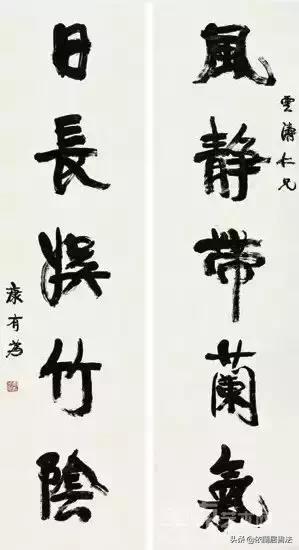 風静帶蘭氣
雲濤仁兄
日長娱竹陰
康有為